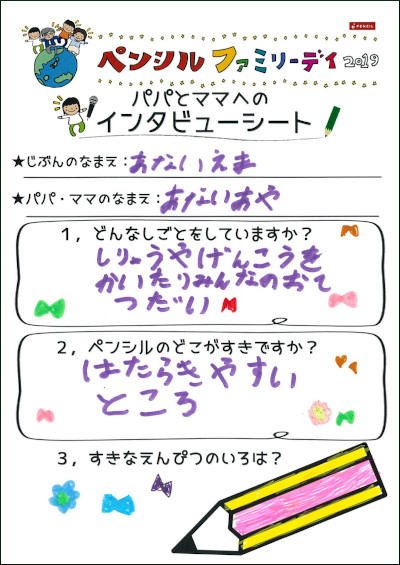 PENCIL
ペンシル ファミリーデイ 2019
パパとママへの
インタビューシート
★じぶんのなまえ：あないえま
★パパ・ママのなまえ：あないあや
1，どんなしごとをしていますか？
しりょうやげんこうを
かいたりみんなのおて
つだい
2，ペンシルのどこがすきですか？
はたらきやすい
ところ
3，すきなえんぴつのいろは？